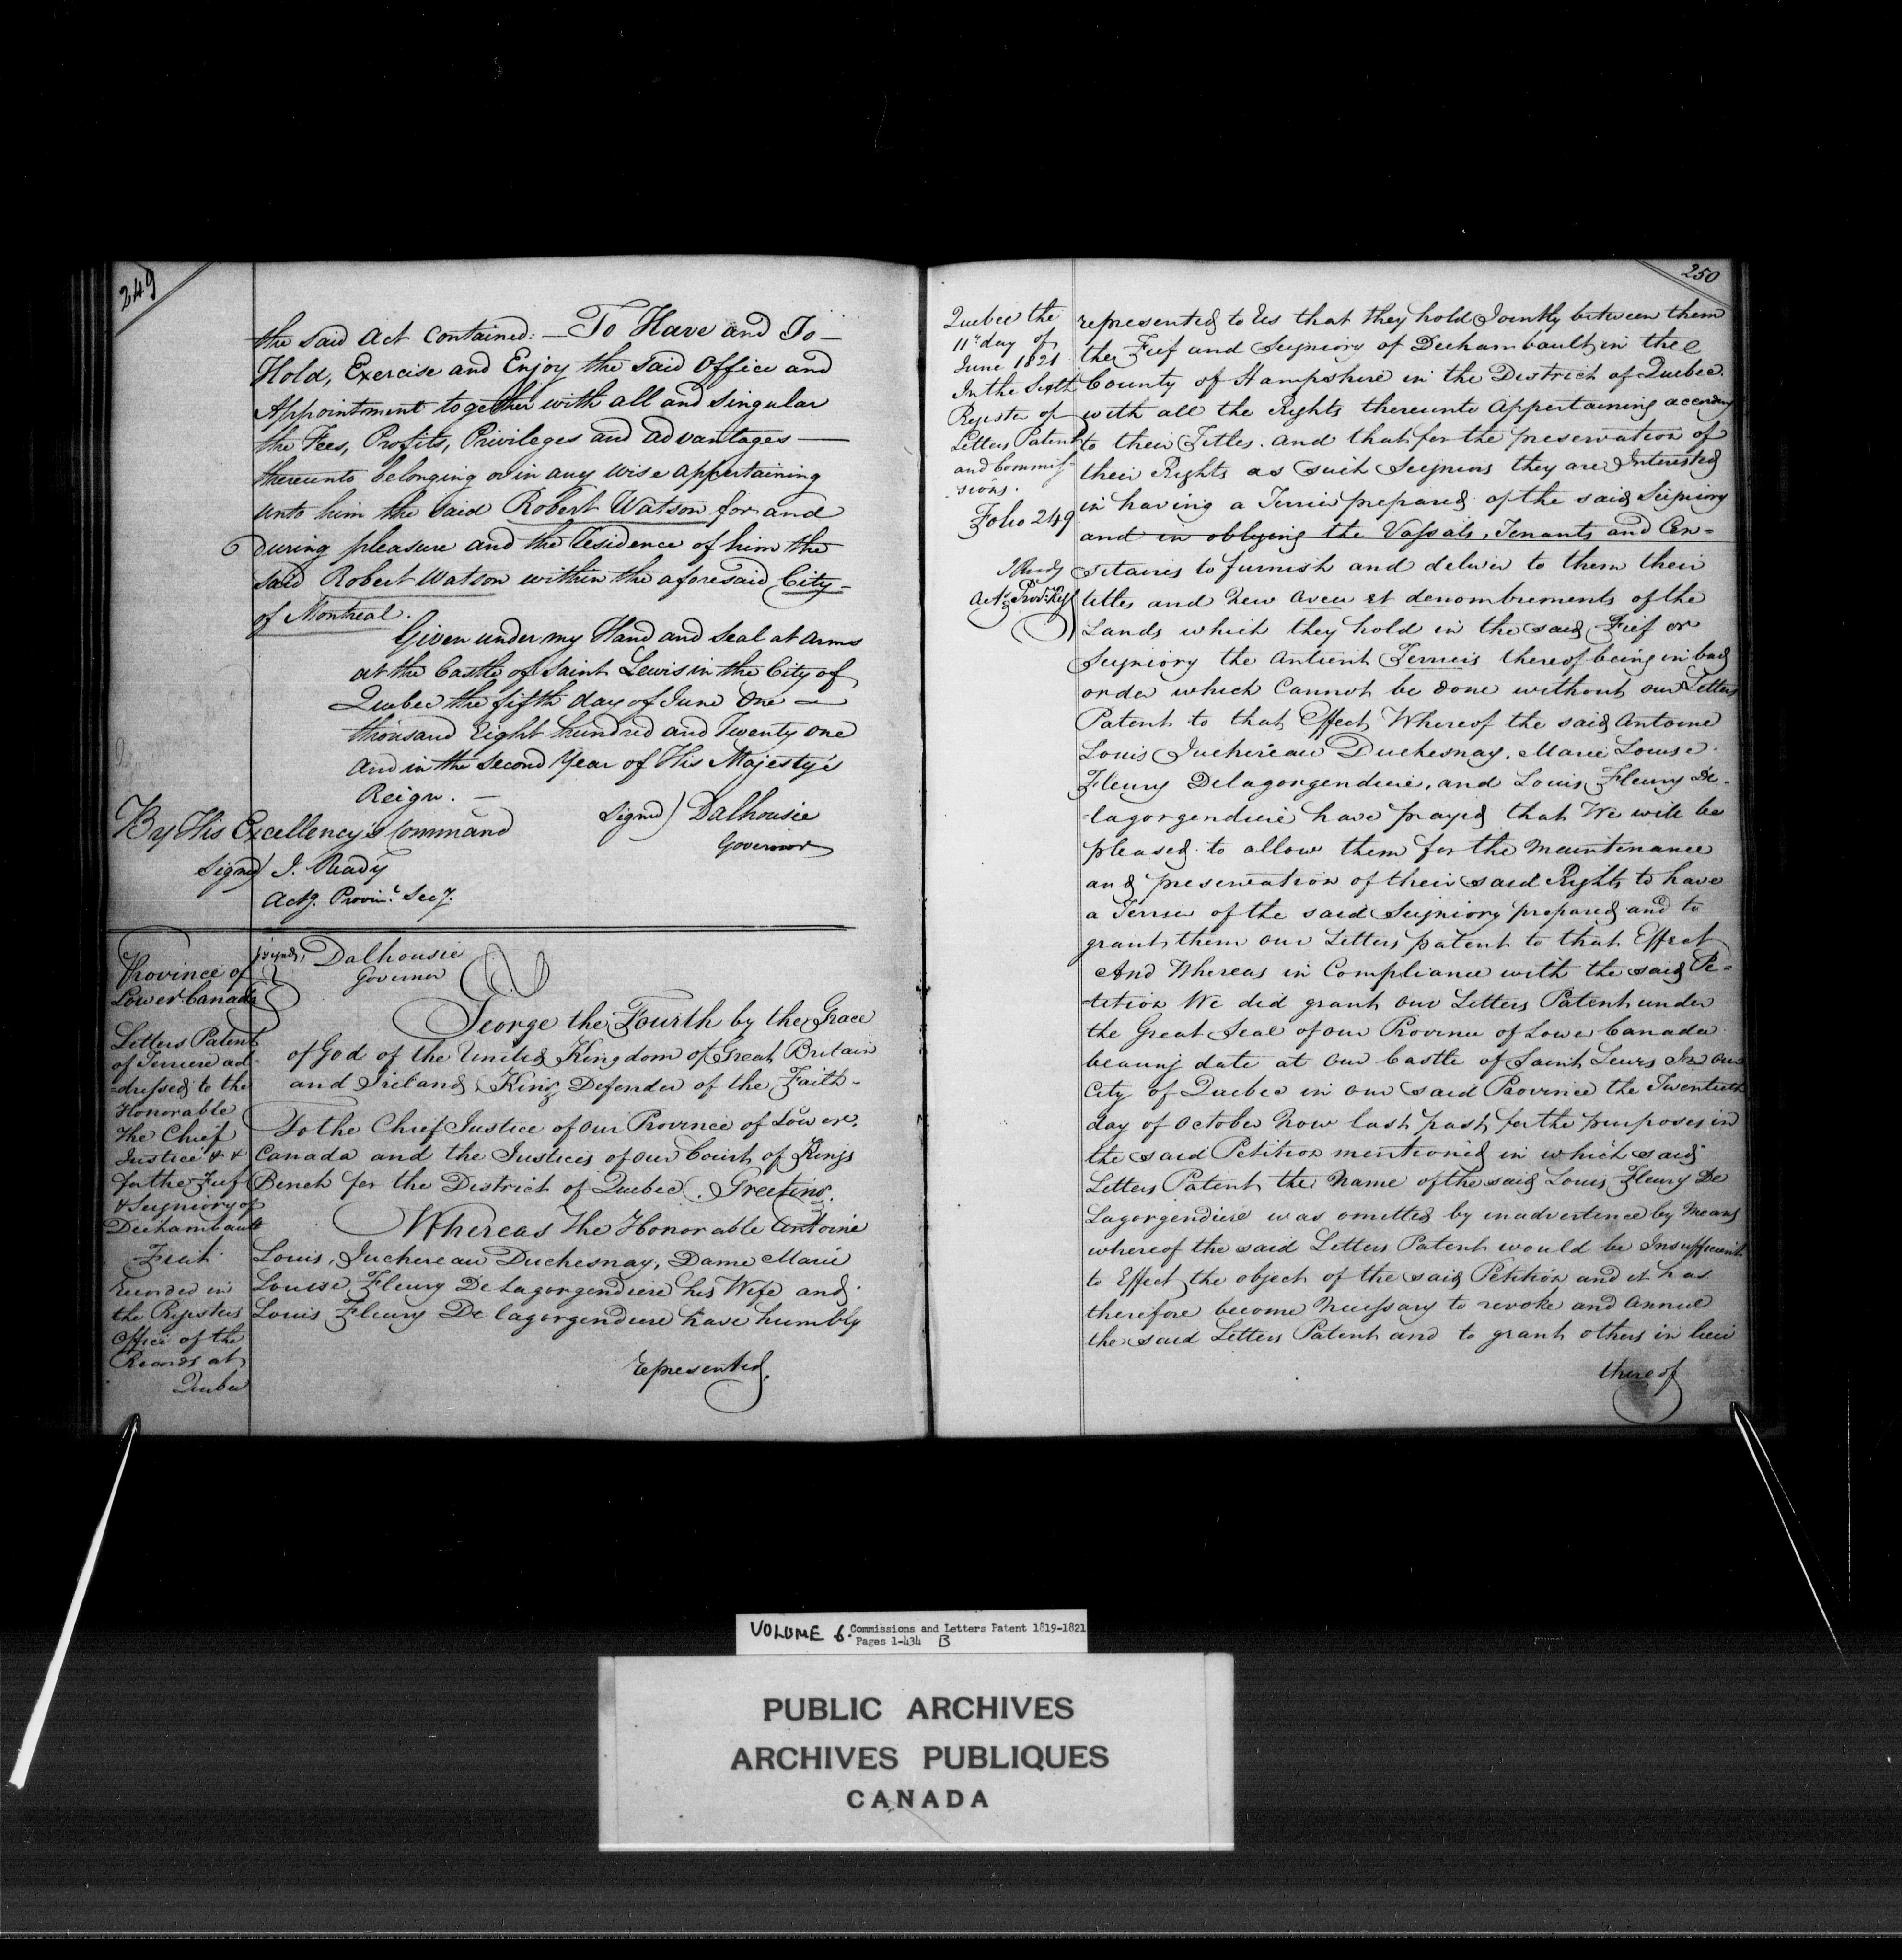 249
the said Act Contained: — To Have and To —
Hold, Exercise and Enjoy the said Office and
Appointment together with all and singular
the Fees, Profits, Privileges and advantages —
thereunto belonging or in any wise appertaining
unto him the said Robert Watson for and
During pleasure and the Residence of him the
said Robert Watson within the aforesaid City
of Montreal.
Given under my Hand and Seal at arms
at the Castle of Saint Lewis in the City of
Quebec the fifth day of June One —
thousand Eight hundred and Twenty one
and in the Second Year of His Majesty's
Reign. —
Signed) Dalhousie
Governor
By His Excellency's Command
Signed) J. Ready
Actg. Provin.l Secy.
Province of
Lower Canada
Letters Patent
of Terrier ad
-dressed to the
Honorable
the Chief
Justice & &
for the Fief
& Seigniory of
Dechambault
Fiat
Recorded in
the Registers
Office of the
Records at
Quebec
(signed) Dalhousie
Governor
George the Fourth by the Grace
of God of the United Kingdom of Great Britain
and Ireland King Defender of the Faith-
To the Chief Justice of our Province of Lower
Canada and the Justices of our Court of Kings
Bench for the District of Quebec. Greeting.
Whereas the Honorable Antoine
Louis, Juchereau Duchesnay, Dame Marie
Louise Fleury De Lagorgendiere his Wife and
Louis Fleury De lagorgendiere have humbly
represented,
250
Quebec the
11th day of
June 1821
In the Sixth
Register of
Letters Patent
and Commis
-sions.
Folio 249
J Ready
Actg Prov. Secy
represented to Us that they hold Jointly between them
the Fief and Seigniory of Dechambault, in the
County of Hampshire in the District of Quebec.
with all the Rights thereunto appertaining according
to their Titles. and that for the preservation of
their Rights as such Seigniors they are Interested
in having a Terrier prepared of the said Seigniory
and in obliging the Vassals, Tenants and Cen=
sitaires to furnish and deliver to them their
titles and New aveu et denombrements of the
Lands which they hold in the said Fief or
Seigniory the Antient Terriers thereof being in bad
order which Cannot be done without our Letters
Patent to that Effect, Whereof the said Antoine
Louis Juchereau Duchesnay, Marie Louise
Fleury Delagorgendiere, and Louis Fleury De-
-lagorgendiere have prayed that We will be
pleased to allow them for the Maintenance
and preservation of their said Rights to have
a Terrier of the said Seigniory prepared and to
grant them our Letters patent to that Effect
And Whereas in Compliance with the said Pe=
-tition We did grant our Letters Patent under
the Great Seal of our Province of Lower Canada
bearing date at our Castle of Saint Lewis In our
City of Quebec in our said Province the Twentieth
day of October Now last past for the purposes in
the said Petition mentioned in which said
Letters Patent the Name of the said Louis Fleury De
Lagorgendiere was omitted by inadvertence by Means
whereof the said Letters Patent would be Insufficient
to Effect the object of the said Petition and it has
therefore become Necessary to revoke and Annul
the said Letters Patent and to grant others in lieu
thereof
VOLUME 6. Commissions and Letters Patent 1819-1821
Pages 1-434 B
PUBLIC ARCHIVES
ARCHIVES PUBLIQUES
CANADA